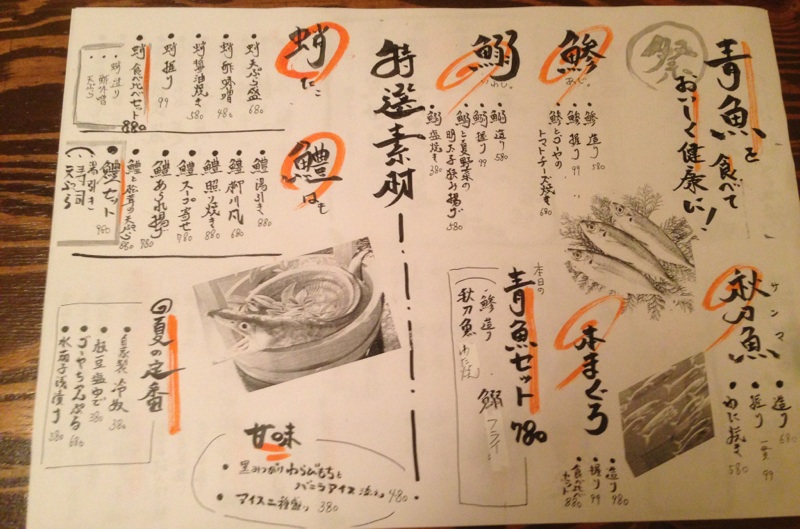 青魚を食べて
おいしく健康に!
祭
サンマ
秋刀魚
・造り 680
・握り 一貫 99
・わた焼き 580
鯵 あじ
・鯵 造り 580
・鯵 握り 99
・鯵とゴーヤの
トマトチーズ焼き 680
本まぐろ
・造り 980
・握り 99
・食べ比べセット
鰯 いわし
・鰯 造り 580
・鰯 握り 99
・鰯と夏野菜の
明太子挟み揚げ 580
・鰯 塩焼き 380
本日の
青魚セット 780
・鯵 造り
・秋刀魚 わた焼
・鰯 フライ
特選素材
蛸 たこ
・蛸 天ぷら盛 680
・蛸 酢味噌 480
・蛸 醤油焼き 580
・蛸 握り 99
・蛸 食べ比べセット 880
・蛸造り
・酢味噌
・天ぷら
鱧 はも
・鱧 湯引き 880
・鱧 柳川風 680
・鱧 照り焼き 880
・鱧 スープ寄せ 780
・鱧 あられ揚げ 780
・鱧と松茸の天ぷら 880
・鱧セット 980
・湯引き
・手まり寿司
・天ぷら
甘味
・黒みつがけわらびもちと
バニラアイス 添え 480
・アイス二種盛り 380
夏の定番
・自家製 冷奴 380
・枝豆塩ゆで 380
・ゴーヤちゃんぷる 680
・水茄子浅漬け 580